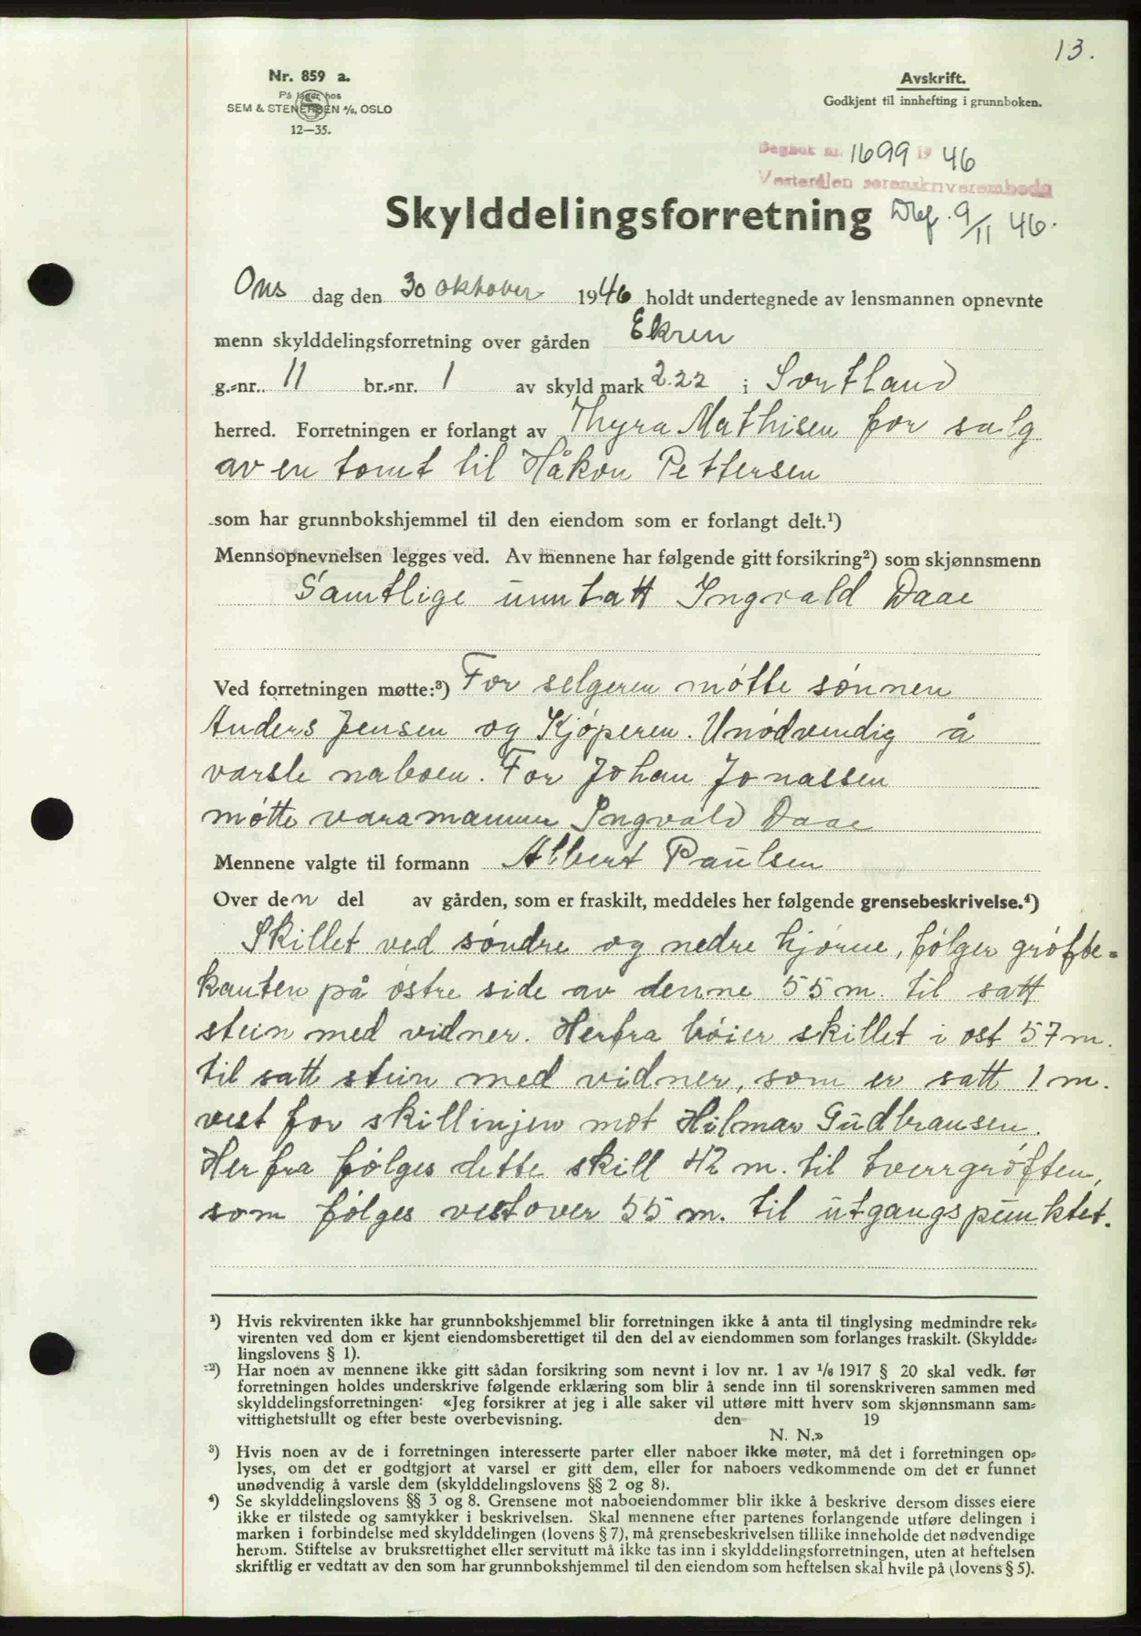 13.
Nr. 859 a.
På lager hos
SEM & STENERSEN A/S, OSLO
12—35.
Avskrift.
Godkjent til innhefting i grunnboken.
Dagbok nr. 1699 19 46
Vesterålen sorenskriverembede
Skylddelingsforretning 9/11 46.
Ons dag den 30 oktober 1946 holdt undertegnede av lensmannen opnevnte
menn skylddelingsforretning over gården Ekren
g.-nr. 11 br.-nr. 1 av skyld mark 2.22 i Sortland
herred. Forretningen er forlangt av Thyra Mathisen for salg
av en tomt til Håkon Pettersen
som har grunnbokshjemmel til den eiendom som er forlangt delt.¹)
Mennsopnevnelsen legges ved. Av mennene har følgende gitt forsikring²) som skjønnsmenn
Samtlige unntatt Ingvald Daae
Ved forretningen møtte:³) For selgeren møtte sønnen
Anders Jensen og Kjøperen. Unødvendig å
varsle naboen. For Johan Jonassen
møtte varamannen Ingvald Daae
Mennene valgte til formann Albert Paulsen
Over den del av gården, som er fraskilt, meddeles her følgende grensebeskrivelse.⁴)
Skillet ved søndre og nedre hjørne, følger grøfte-
kanten på østre side av denne 55 m. til satt
stein med vidner. Herfra bøier skillet i ost 57 m.
til satt stein med vidner, som er satt 1 m.
vest for skillinjen mot Hilmar Gudbransen.
Herfra følges dette skill 42 m. til tverrgrøften,
som følges vestover 55 m. til utgangspunktet.
¹) Hvis rekvirenten ikke har grunnbokshjemmel blir forretningen ikke å anta til tinglysing medmindre rek-
virenten ved dom er kjent eiendomsberettiget til den del av eiendommen som forlanges fraskilt. (Skyldde-
lingslovens § 1).
²) Har noen av mennene ikke gitt sådan forsikring som nevnt i lov nr. 1 av ¹/₆ 1917 § 20 skal vedk. før
forretningen holdes underskrive følgende erklæring som blir å sende inn til sorenskriveren sammen med
skylddelingsforretningen: «Jeg forsikrer at jeg i alle saker vil utføre mitt hverv som skjønnsmann sam-
vittighetsfullt og efter beste overbevisning. den 19
N. N.»
³) Hvis noen av de i forretningen interesserte parter eller naboer ikke møter, må det i forretningen op-
lyses, om det er godtgjort at varsel er gitt dem, eller for naboers vedkommende om det er funnet
unødvendig å varsle dem (skylddelingslovens §§ 2 og 8).
⁴) Se skylddelingslovens §§ 3 og 8. Grensene mot naboeiendommer blir ikke å beskrive dersom disses eiere
ikke er tilstede og samtykker i beskrivelsen. Skal mennene efter partenes forlangende utføre delingen i
marken i forbindelse med skylddelingen (lovens § 7), må grensebeskrivelsen tillike inneholde det nødvendige
herom. Stiftelse av bruksrettighet eller servitutt må ikke tas inn i skylddelingsforretningen, uten at heftelsen
skriftlig er vedtatt av den som har grunnbokshjemmel til den eiendom som heftelsen skal hvile på (lovens § 5).